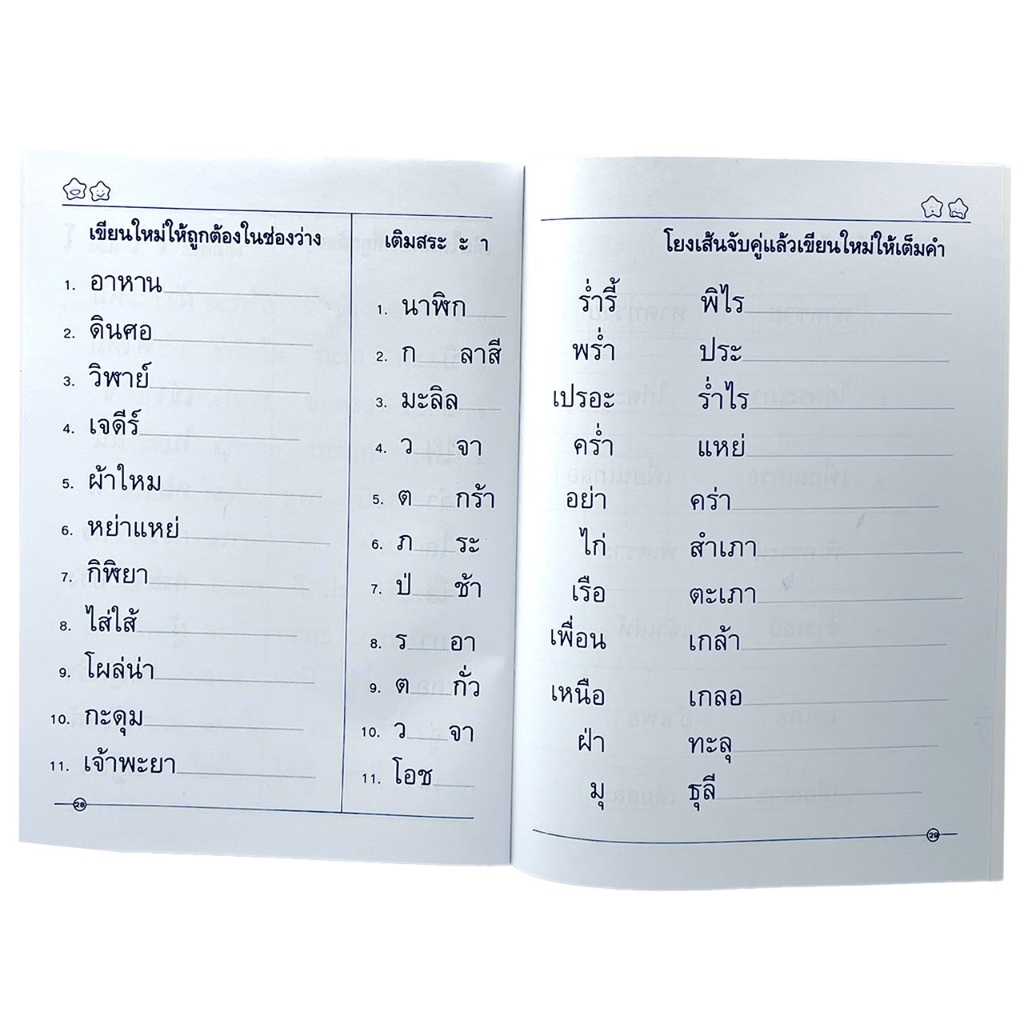 เขียนใหม่ให้ถูกต้องในช่องว่าง
1. อาหาน
2. ดินศอ
3. วิพาย์
4. เจดีร์
5. ผ้าใหม
6. หย่าแหย่
7. กิพิยา
8. ไส่ใส้
9. โผล่น่า
10. กะดุม
11. เจ้าพะยา
28
เติมสระ ะ า
1. นาฬิก
2. ก ลาสี
3. มะลิล
4. ว จา
5. ต กร้า
6. ภ ระ
7. ป่ ช้า
8. ร อา
9. ต กั่ว
10. ว จา
11. โอช
โยงเส้นจับคู่แล้วเขียนใหม่ให้เต็มคำ
ร่ำรี้ พิไร
พร่ำ ประ
เปรอะ ร่ำไร
คร่ำ แหย่
อย่า คร่า
ไก่ สำเภา
เรือ ตะเภา
เพื่อน เกล้า
เหนือ เกลอ
ฝ่า ทะลุ
มุ ธุลี
29